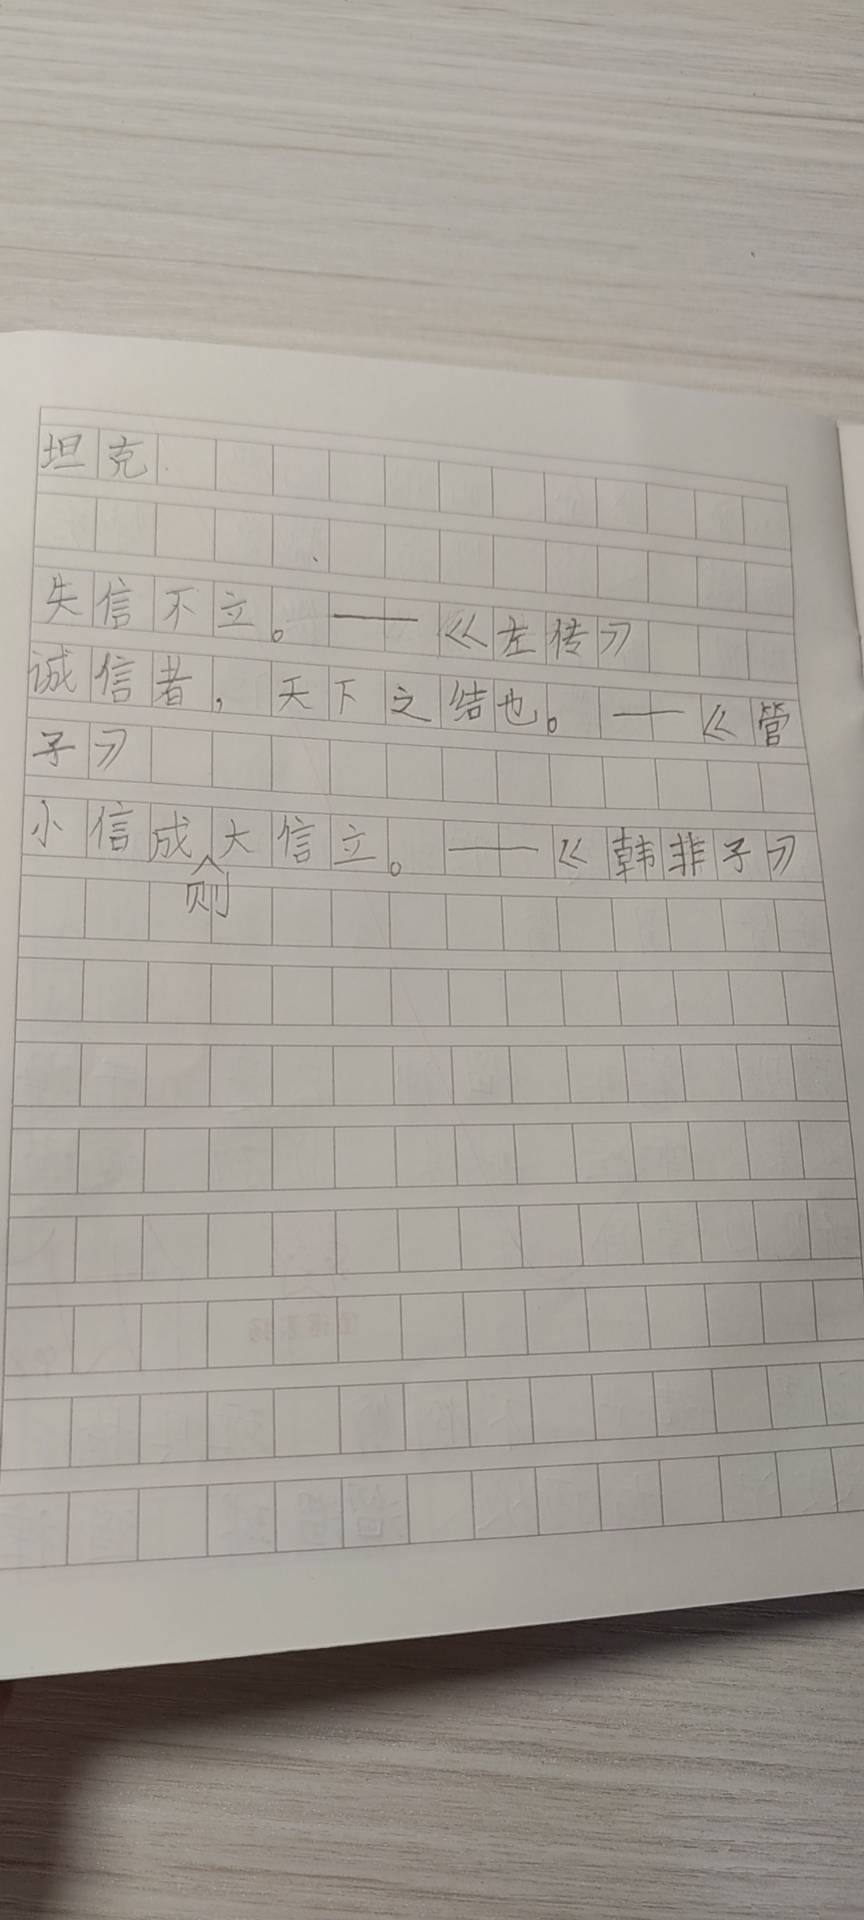 坦克
失信不立。——《左传》
诚信者，天下之结也。——《管
子》
小信成则大信立。——《韩非子》